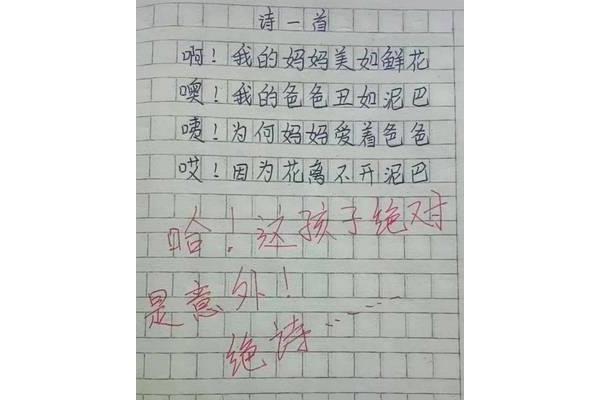 诗一首
啊！我的妈妈美如鲜花
噢！我的色色丑如泥巴
咦！为何妈妈爱着色色
哎！因为花离不开泥巴
哈！这孩子绝对
是意外！
绝诗……